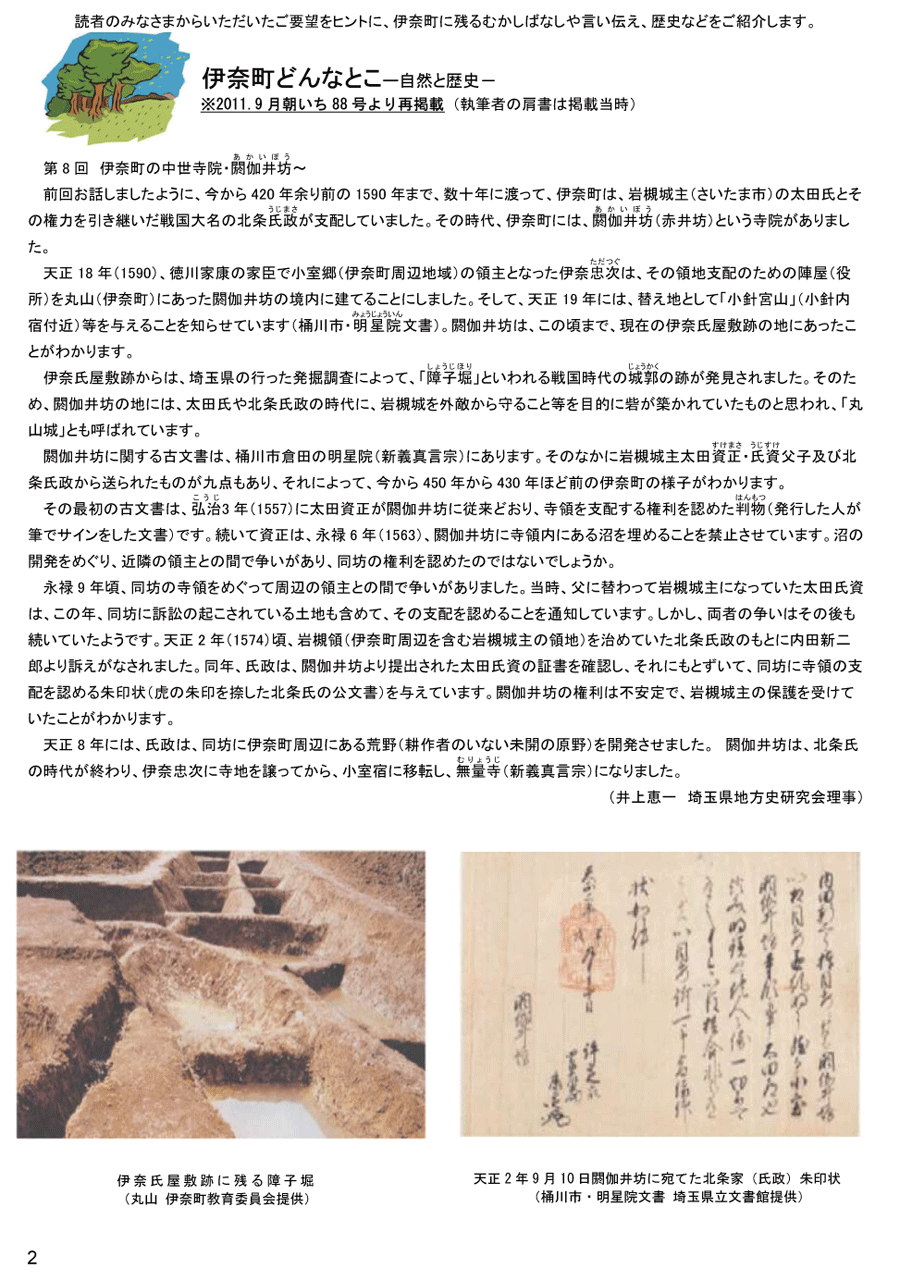 読者のみなさまからいただいたご要望をヒントに、伊奈町に残るむかしばなしや言い伝え、歴史などをご紹介します。
伊奈町どんなとこ－自然と歴史－
※2011.9月朝いち88号より再掲載（執筆者の肩書は掲載当時）
あかいぼう
第8回　伊奈町の中世寺院・閼伽井坊～
前回お話しましたように、今から420年余り前の1590年まで、数十年に渡って、伊奈町は、岩槻城主（さいたま市）の太田氏とそ
うじまさ　あかいぼう
の権力を引き継いだ戦国大名の北条氏政が支配していました。その時代、伊奈町には、閼伽井坊（赤井坊）という寺院がありまし
た。
ただつぐ
天正18年（1590）、徳川家康の家臣で小室郷（伊奈町周辺地域）の領主となった伊奈忠次は、その領地支配のための陣屋（役
所）を丸山（伊奈町）にあった閼伽井坊の境内に建てることにしました。そして、天正19年には、替え地として「小針宮山」（小針内
みょうじょういん
宿付近）等を与えることを知らせています（桶川市・明星院文書）。閼伽井坊は、この頃まで、現在の伊奈氏屋敷跡の地にあったこ
とがわかります。
しょうじほり　じょうかく
伊奈氏屋敷跡からは、埼玉県の行った発掘調査によって、「障子堀」といわれる戦国時代の城郭の跡が発見されました。そのた
め、閼伽井坊の地には、太田氏や北条氏政の時代に、岩槻城を外敵から守ること等を目的に砦が築かれていたものと思われ、「丸
山城」とも呼ばれています。
すけまさ　うじすけ
閼伽井坊に関する古文書は、桶川市倉田の明星院（新義真言宗）にあります。そのなかに岩槻城主太田資正・氏資父子及び北
条氏政から送られたものが九点もあり、それによって、今から450年から430年ほど前の伊奈町の様子がわかります。
こうじ　はんもつ
その最初の古文書は、弘治3年（1557）に太田資正が閼伽井坊に従来どおり、寺領を支配する権利を認めた判物（発行した人が
筆でサインをした文書）です。続いて資正は、永禄6年（1563）、閼伽井坊に寺領内にある沼を埋めることを禁止させています。沼の
開発をめぐり、近隣の領主との間で争いがあり、同坊の権利を認めたのではないでしょうか。
永禄9年頃、同坊の寺領をめぐって周辺の領主との間で争いがありました。当時、父に替わって岩槻城主になっていた太田氏資
は、この年、同坊に訴訟の起こされている土地も含めて、その支配を認めることを通知しています。しかし、両者の争いはその後も
続いていたようです。天正2年（1574）頃、岩槻領（伊奈町周辺を含む岩槻城主の領地）を治めていた北条氏政のもとに内田新二
郎より訴えがなされました。同年、氏政は、閼伽井坊より提出された太田氏資の証書を確認し、それにもとずいて、同坊に寺領の支
配を認める朱印状（虎の朱印を捺した北条氏の公文書）を与えています。閼伽井坊の権利は不安定で、岩槻城主の保護を受けて
いたことがわかります。
天正8年には、氏政は、同坊に伊奈町周辺にある荒野（耕作者のいない未開の原野）を開発させました。　閼伽井坊は、北条氏
むりょうじ
の時代が終わり、伊奈忠次に寺地を譲ってから、小室宿に移転し、無量寺（新義真言宗）になりました。
（井上恵一　埼玉県地方史研究会理事）
伊奈氏屋敷跡に残る障子堀
（丸山 伊奈町教育委員会提供）
天正2年9月10日閼伽井坊に宛てた北条家（氏政）朱印状
（桶川市・明星院文書 埼玉県立文書館提供）
2